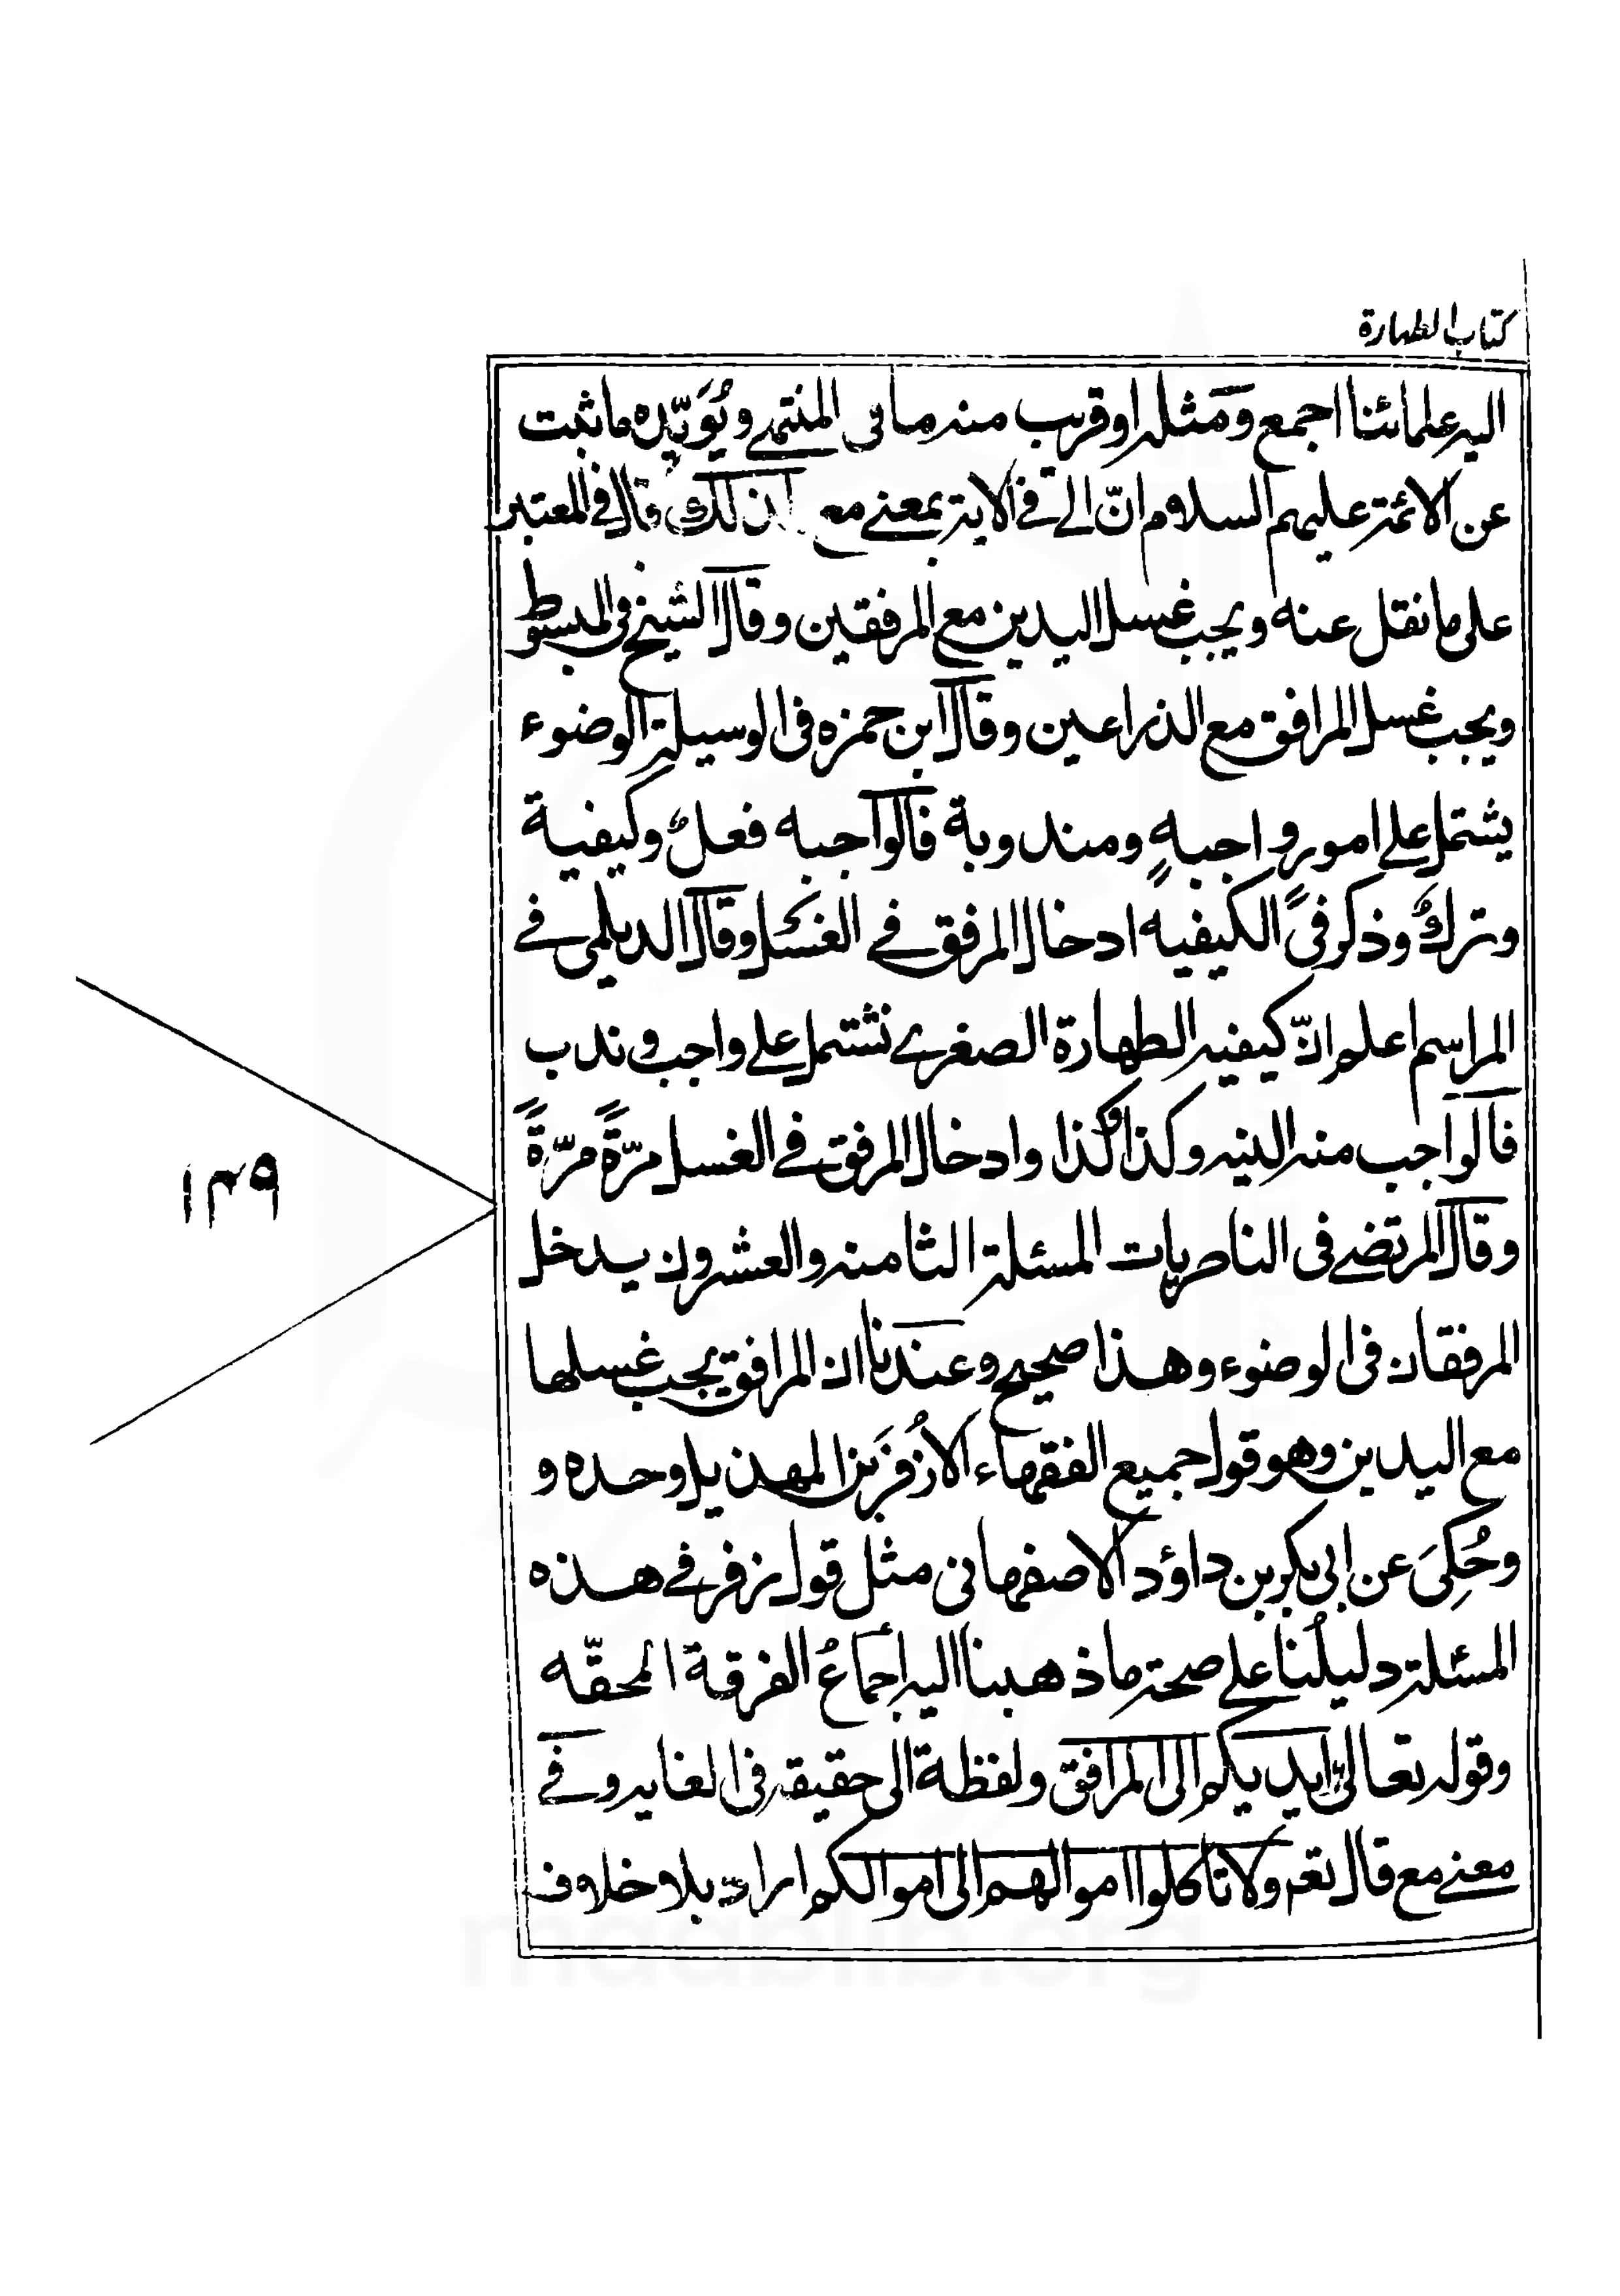 كتاب الطهارة
اليه علمائنا اجمع ومثله او قريب منه ما فى المنتهى ويُؤيّده ما ثبت
عن الائمة عليهم السلام انّ الى فى الاية بمعنى مع لذلك قال فى المعتبر
على ما نقل عنه ويجب غسل اليدين مع المرفقين وقال الشيخ فى المبسوط
ويجب غسل المرافق مع الذراعين وقال ابن حمزه فى الوسيلة الوضوء
يشتمل على امور واجبهٍ ومندوبة فالواجبه فعلٌ وكيفية
وتركٌ وذكر فى الكيفيه ادخال المرفق فى الغسل وقال الديلمى فى
المراسم اعلم انّ كيفيه الطهارة الصغرى تشتمل على واجب وندب
فالواجب منه النيه وكذا وكذا وادخال المرفق فى الغسل مرّةً مرّةً
وقال المرتضى فى الناصريات المسئلة الثامنه والعشرون يدخل
المرفقان فى الوضوء وهذا صحيح وعندنا ان المرافق يجب غسلها
مع اليدين وهو قول جميع الفقهاء الا زُفَر بن الهذيل وحده و
وحُكِىَ عن ابى بكر بن داؤد الاصفهانى مثل قول زفر فى هذه
المسئلة دليلُنا على صحة ما ذهبنا اليه إجماعُ الفرقة المحقّه
وقوله تعالى ايديكم الى المرافق ولفظة الى حقيقه فى الغايه وفى
معنى مع قال تعه ولا تاكلوا اموالهم الى اموالكم اراد بلا خلاف
١٣٩
maablib.org